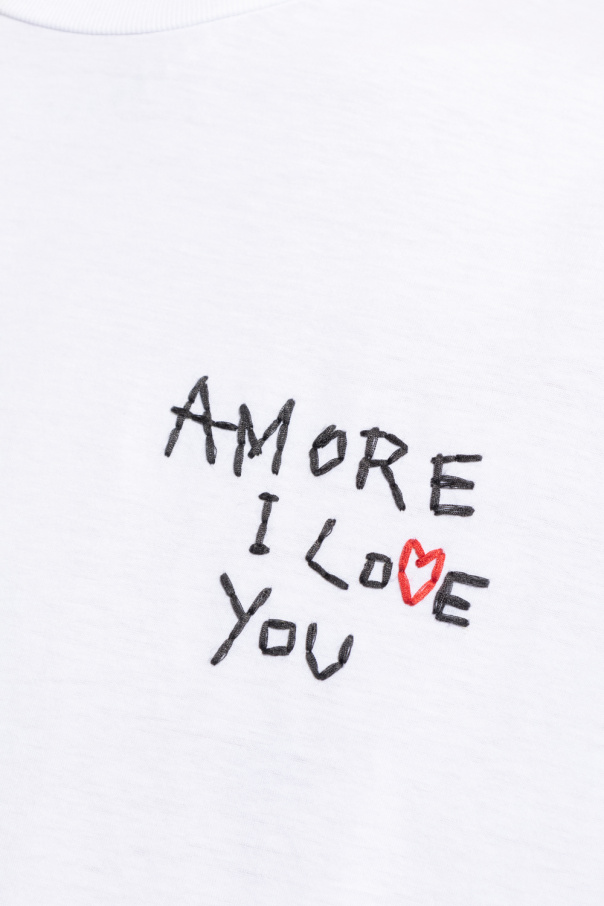 AMORE
I LO❤E
YOU